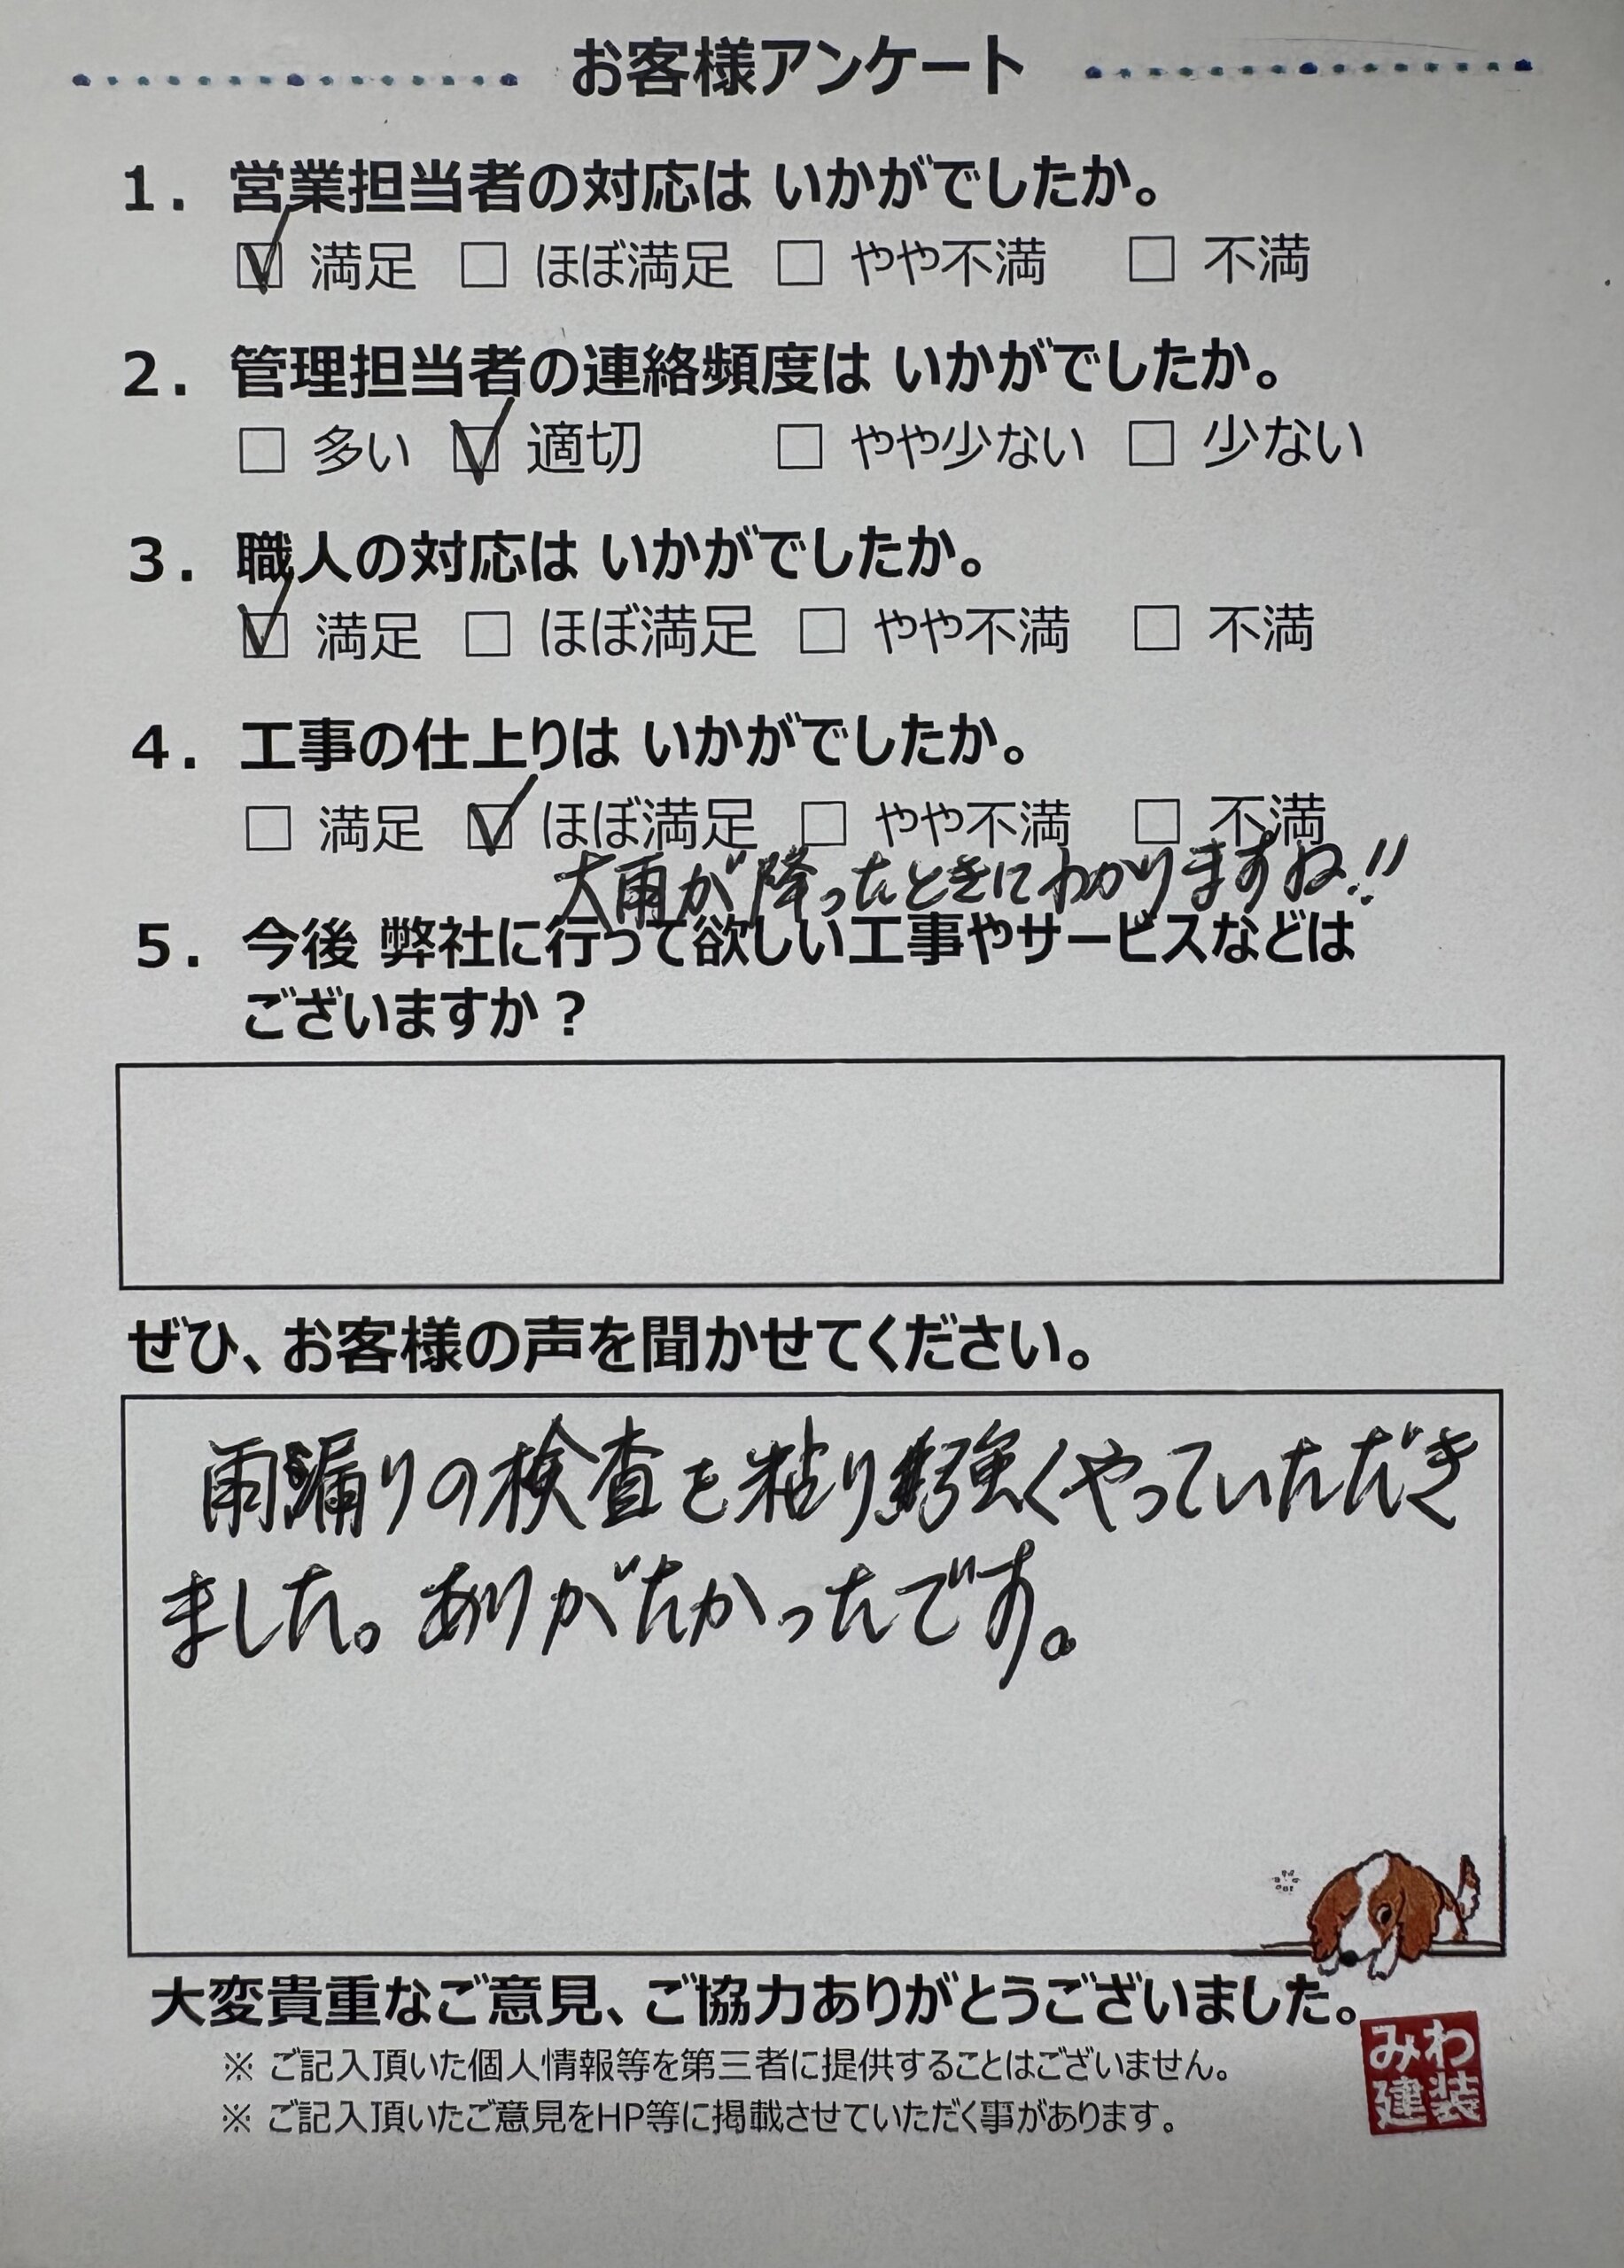 お客様アンケート
1. 営業担当者の対応は いかがでしたか。
☑ 満足 □ ほぼ満足 □ やや不満 □ 不満
2. 管理担当者の連絡頻度は いかがでしたか。
□ 多い ☑ 適切 □ やや少ない □ 少ない
3. 職人の対応は いかがでしたか。
☑ 満足 □ ほぼ満足 □ やや不満 □ 不満
4. 工事の仕上りは いかがでしたか。
□ 満足 ☑ ほぼ満足 □ やや不満 □ 不満
大雨が降ったときにわかりますね!!
5. 今後 弊社に行って欲しい工事やサービスなどは
ございますか？
ぜひ、お客様の声を聞かせてください。
雨漏りの検査を粘り強くやっていただき
ました。ありがたかったです。
大変貴重なご意見、ご協力ありがとうございました。
※ ご記入頂いた個人情報等を第三者に提供することはございません。
※ ご記入頂いたご意見をHP等に掲載させていただく事があります。
みわ
建装